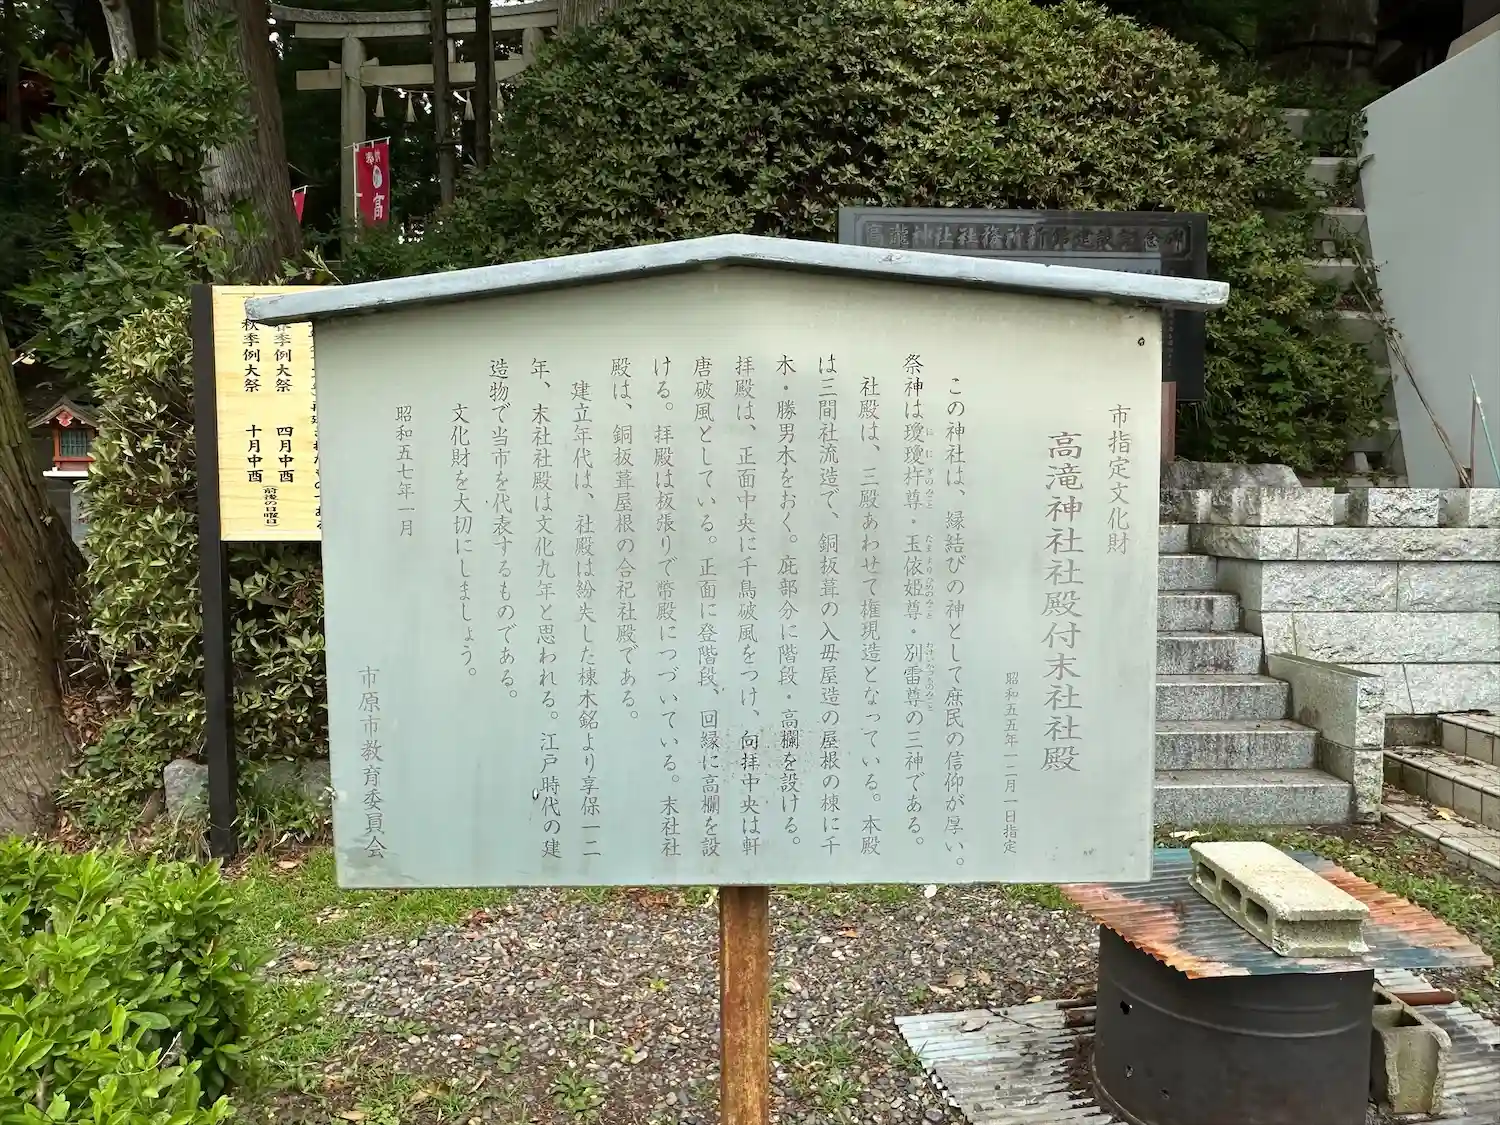 市指定文化財
高滝神社社殿付末社社殿
昭和五五年一二月一日指定
この神社は、縁結びの神として庶民の信仰が厚い。
祭神は瓊瓊杵尊・玉依姫尊・別雷尊の三神である。
社殿は、三殿あわせて権現造となっている。本殿
は三間社流造で、銅板葺の入母屋造の屋根の棟に千
木・勝男木をおく。庇部分に階段・高欄を設ける。
拝殿は、正面中央に千鳥破風をつけ、向拝中央は軒
唐破風としている。正面に登階段、回縁に高欄を設
ける。拝殿は板張りで幣殿につづいている。末社社
殿は、銅板葺屋根の合祀社殿である。
建立年代は、社殿は紛失した棟木銘より享保一二
年、末社社殿は文化九年と思われる。江戸時代の建
造物で当市を代表するものである。
文化財を大切にしましょう。
昭和五七年一月
市原市教育委員会
春季例大祭 四月中酉
秋季例大祭 十月中酉
(前後の日曜日)
高滝神社社務所新築建設記念碑
高